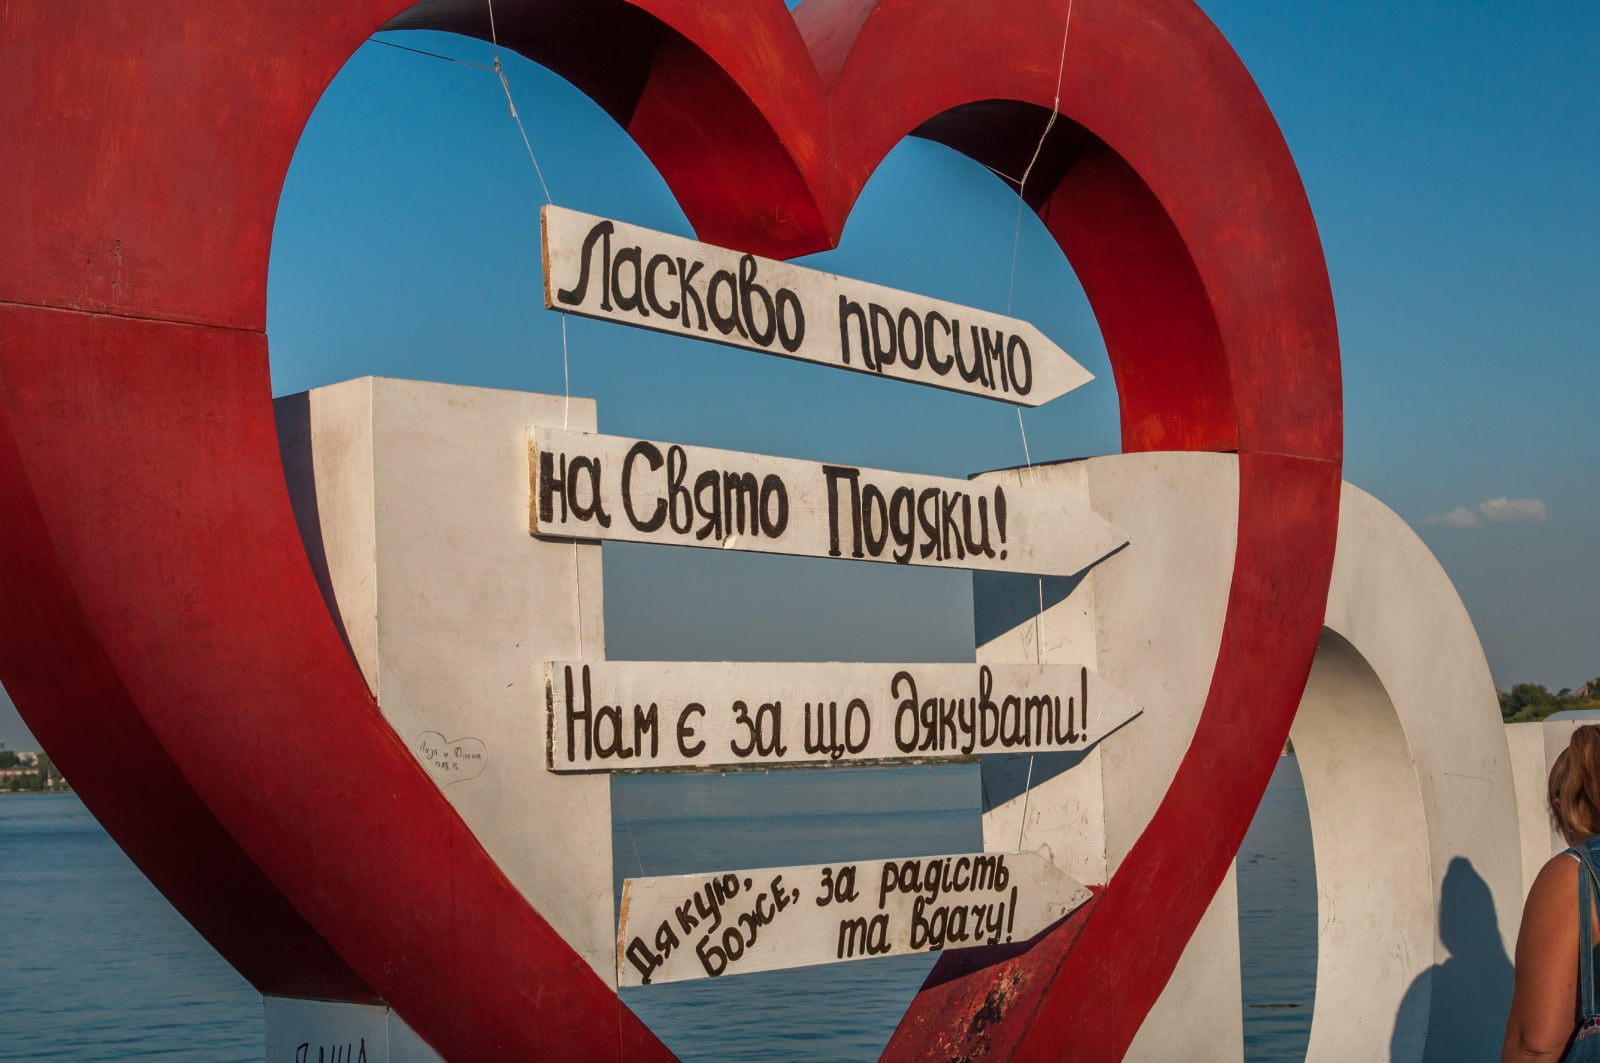 Ласкаво просимо
на Свято Подяки!
Нам є за що дякувати!
Дякую, Боже, за радість
та вдачу!